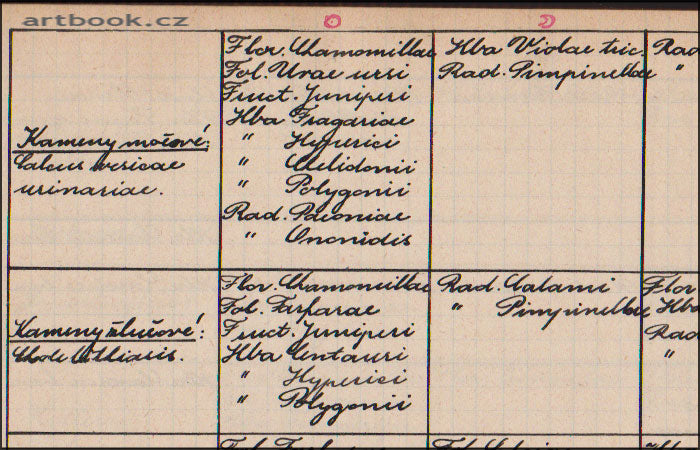 artbook.cz
Flor. Chamomillae
Fol. Uvae ursi
Fruct. Juniperi
Hba Fragariae
" Hyperici
" Chelidonii
" Polygonii
Rad. Paeoniae
" Ononidis
Hba Violae tric.
Rad. Pimpinellae
Rad
"
Kameny močové:
Calcus vesicae
urinariae.
Flor. Chamomillae
Fol. Farfarae
Fruct. Juniperi
Hba Centauri
" Hyperici
" Polygonii
Rad. Calami
" Pimpinellae
Flor
Hba
Rad
"
Kameny žlučové: